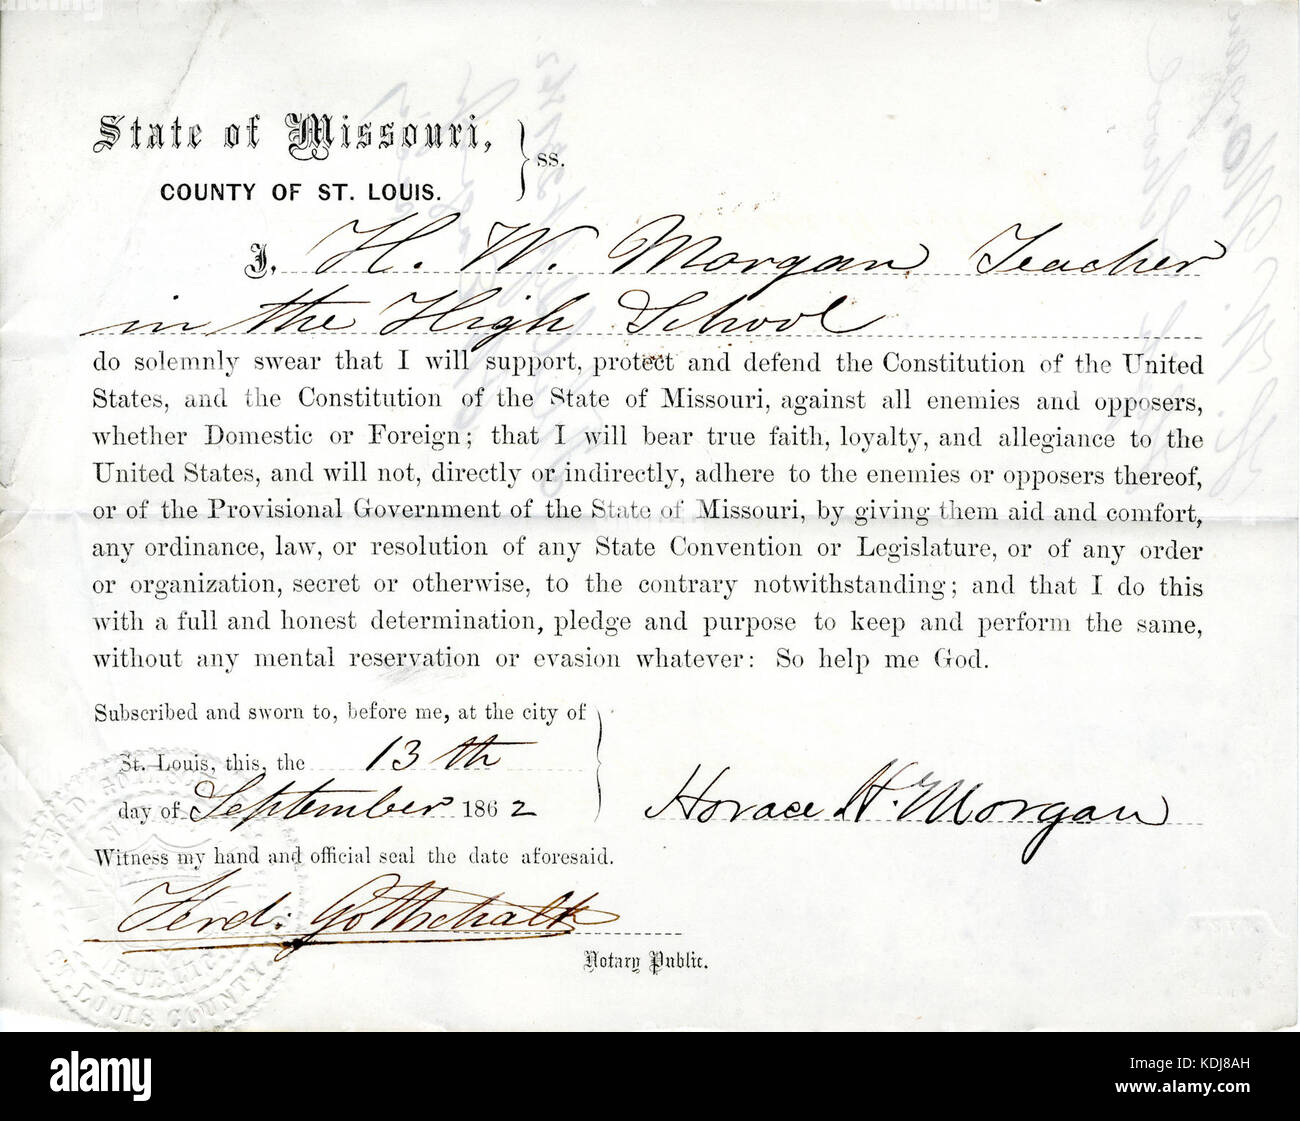 State of Missouri,
COUNTY OF ST. LOUIS.
ss.
I, H. W. Morgan, Teacher
in the High School
do solemnly swear that I will support, protect and defend the Constitution of the United
States, and the Constitution of the State of Missouri, against all enemies and opposers,
whether Domestic or Foreign; that I will bear true faith, loyalty, and allegiance to the
United States, and will not, directly or indirectly, adhere to the enemies or opposers thereof,
or of the Provisional Government of the State of Missouri, by giving them aid and comfort,
any ordinance, law, or resolution of any State Convention or Legislature, or of any order
or organization, secret or otherwise, to the contrary notwithstanding; and that I do this
with a full and honest determination, pledge and purpose to keep and perform the same,
without any mental reservation or evasion whatever: So help me God.
Subscribed and sworn to, before me, at the city of
St. Louis, this, the 13th
day of September 1862
Horace W. Morgan
Witness my hand and official seal the date aforesaid.
Ferd. Gottschalk
Notary Public.
PUBLIC
ST. LOUIS COUNTY.
alamy
Image ID: KDJ8AH
www.alamy.com